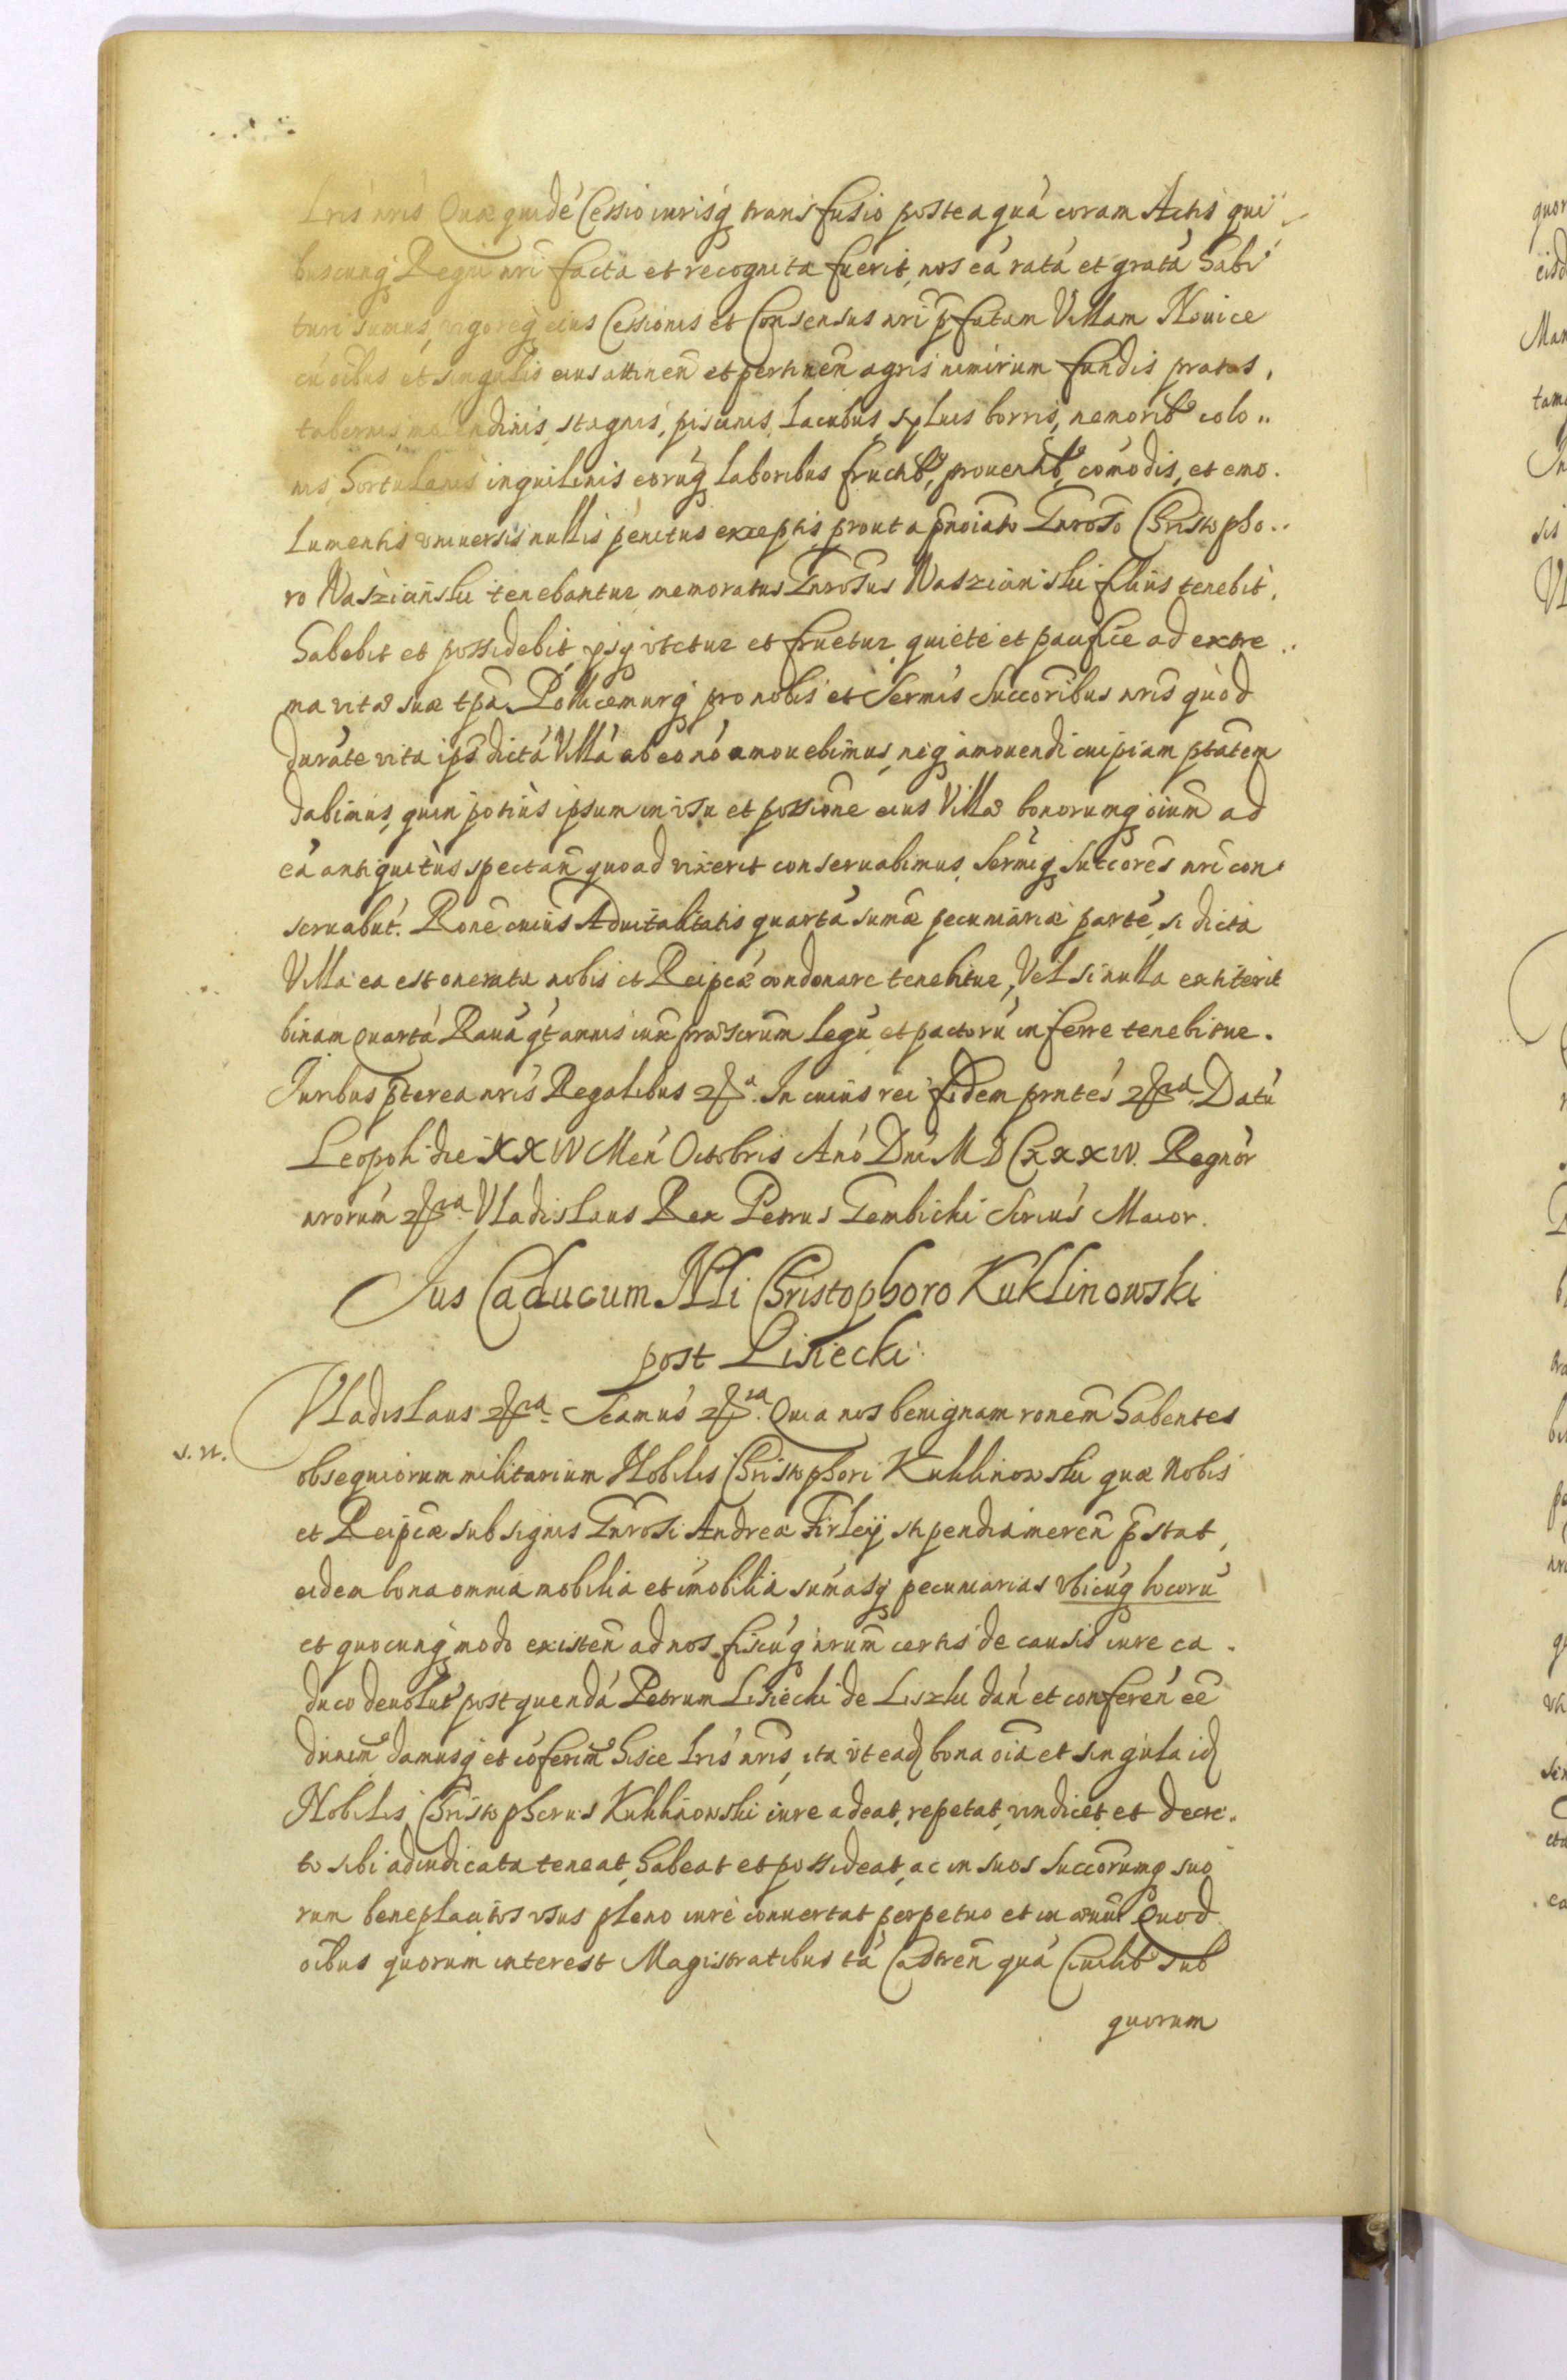 Lris nris Quæ quidé Cessio iurisq transfusio posteaquá coram Actis qui
buscunq Regni nri facta et recognita fuerit, nos eá ratá et gratá habi
turi sumus, vigoreq eius Cessionis et Consensus nri pfatam Villam Nouice
cú oibus et singulis eius attinen et pertinen agris nimirum fundis pratis,
tabernis, molendinis, stagnis, piscinis, Lacubus, sylvis borris, nemorib colo..
nis, hortulanis inquilinis eorúq laboribus fructib, prouentib, comodis, et emo.
Lumentis vniuersis nullis penitus exceptis prout a pnoiato Gnroso Christopho..
ro Waszicinski tenebantur memoratus Gnrosus Waszicinski filius tenebit,
habebit et possidebit, ysq vtetur et fruetur quiete et pacifice ad extre..
ma vitæ suæ tpa. Pollicemurq pro nobis et Sermis Succoribus nris quod
duráte vita ips dictá Villá ab eo nó amouebimus, neq amouendi cuipiam ptatem
dabimus, quin potius ipsum in vsu et possione eius Villæ bonorumq oium ad
eá antiquitùs spectan quoad vixerit conseruabimus, Sermiq Succores nri con.
seruabút. Rone cuius Aduitalitatis quartá sumæ pecuniariæ parté, si dicta
Villa ea est onerata nobis et Reipcæ condonare tenebitur, Vel si nulla extiterit
binam quartá Rauá qt annis iux præscrum legú et pactorú inferre tenebitur.
Iuribus pterea nris Regalibus &a. In cuius rei fidem prntés &ra. Datú
Leopoli die XXIV Men Octobris Anó Dni MDCXXXIV. Regnór
nrorúm &ra. Vladislaus Rex Petrus Gembicki Srius Maior.
Jus Caducum Nli Christophoro Kuklinowski
post Lisiecki.
Vladislaus &ra. Scamus &ra. Quia nos benignam ronem habentes
s. n.
obsequiorum militarium Nobilis Christophori Kuklinowski quæ Nobis
et Reipcæ sub signis Gnrosi Andreæ Firleÿ stipendia meren pstat,
eidem bona omnia mobilia et imobilia sumasq pecuniarias vbicúq locorú
et quocunq modo existen ad nos fiscúq nrum certis de causis iure ca.
duco deuolut post quendá Petrum Lisiecki de Liszki dan et conferen eé
duxim damusq et cóferim hisce Lris nris, ita vt eadq bona oia et singula idq
Nobilis Christophorus Kuklinowski iure adeat, repetat, vindicet, et decre.
to sibi adiudicata teneat, habeat et possideat, ac in suos succorumq suo
rum beneplacitos vsus pleno iure conuertat perpetuo et in æuú. Quod
oibus quorum interest Magistratibus tá Castren quá Ciuilib sub
quorum